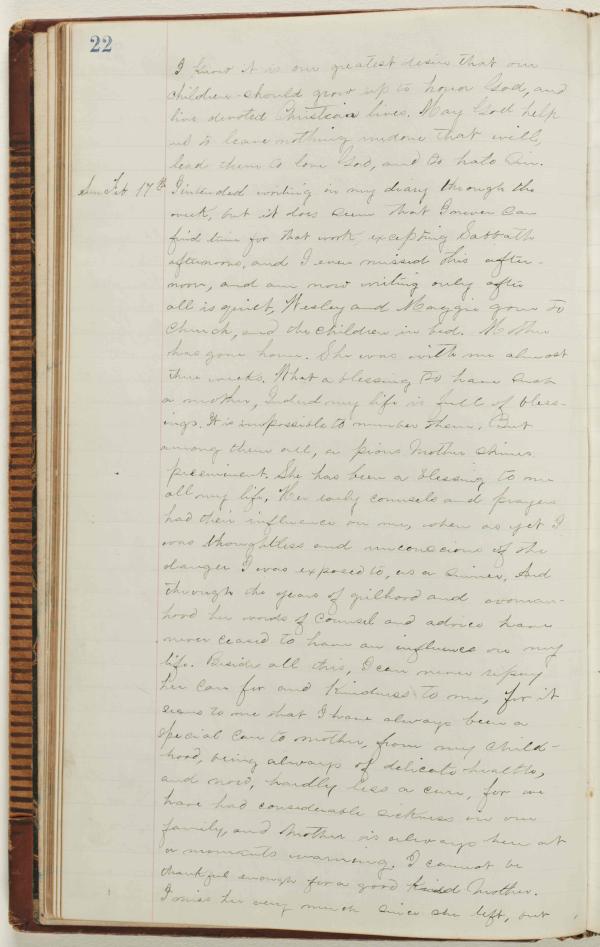 22
I know it is our greatest desire that our
children should grow up to honor God, and
live devoted Christian lives. May God help
us to leave nothing undone that will,
lead them to love God, and to hate Sin.
Sun Feb 17th I intended writing in my diary through the
week, but it does seem that I never can
find time for that work, excepting Sabbath
afternoons, and I even missed this after-
noon, and am now writing only after
all is quiet, Wesley and Maggie gone to
Church, and the children in bed. Mother
has gone home. She was with me almost
three weeks. What a blessing to have such
a mother, Indeed my life is full of bless-
ings. It is impossible to number them. But
among them all, a pious Mother shines
preeminent. She has been a blessing to me
all my life, Her early counsels and prayers
had their influence on me, when as yet I
was thoughtless and unconscious of the
danger I was exposed to, as a sinner, And
through the years of girlhood and woman-
hood her words of Counsel and advice have
never ceased to have an influence on my
life. Beside all this, I can never repay
her care for and kindness to me, for it
seems to me that I have always been a
special care to mother, from my child-
hood, being always of delicate health,
and now, hardly less a care, for we
have had considerable sickness in our
family, and Mother is always here at
a moments warning. I cannot be
thankful enough for a good kind Mother.
I miss her very much since she left, but